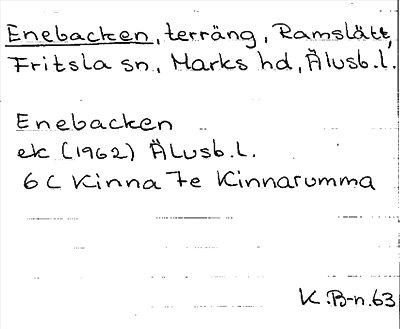 Enebacken, terräng, Ramslätt,
Fritsla sn, Marks hd, Älvsb.l.
Enebacken
ek (1962) Älvsb.l.
6 C Kinna 7e Kinnarumma
K.B-n.63